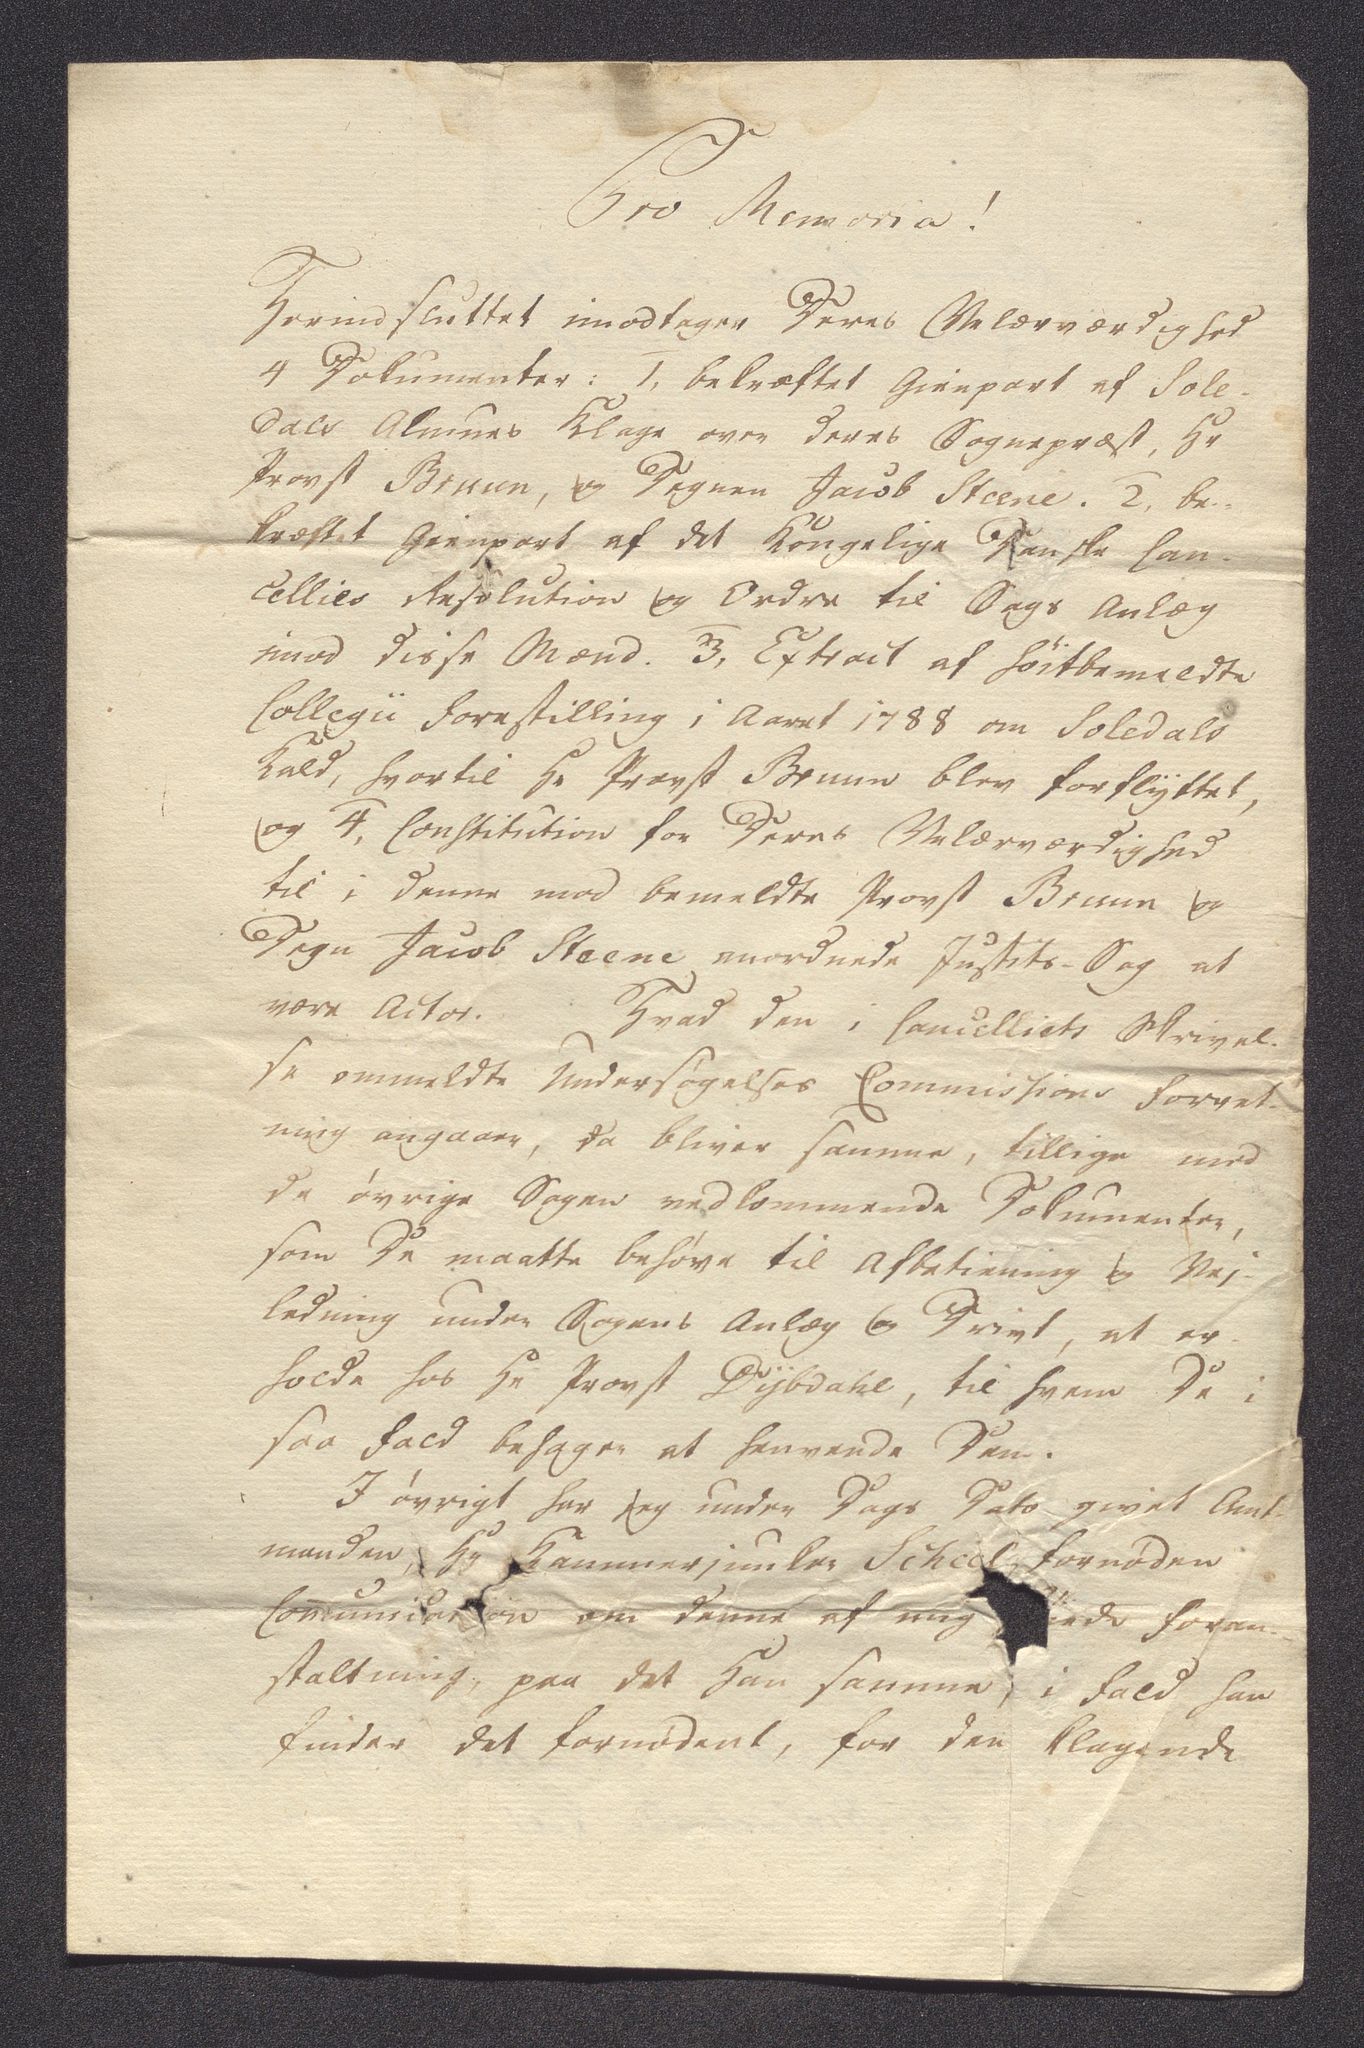 Pro Memoria!
Herindsluttet imodtager Deres Velærværdighed
4 Dokumenter: 1, bekræftet Gienpart af Sole-
dals Almues Klage over deres Sognepræst, Hr
Provst Bruun, og Degnen Jacob Steene. 2, be-
kræftet Gienpart af det Kongelige Danske Can-
cellies Resolution og Ordre til Sags Anlæg
imod disse Mænd. 3, Extract af høitbemeldte
Collegii Forestilling i Aaret 1788 om Soledals
Kald, hvortil Hr Provst Bruun blev forflyttet,
og 4, Constitution for Deres Velærværdighed
til i denne mod bemeldte Provst Bruun og
Degn Jacob Steene anordnede Justits-Sag at
være Actor. Hvad den i Cancelliets Skrivel-
se ommeldte Undersøgelses Commissions Forret-
ning angaaer, da bliver samme, tillige med
de øvrige Sagen vedkommende Dokumenter,
som De maatte behøve til Afbetiening og Vej-
ledning under Sagens Anlæg og Drivt, at er-
holde hos Hr Provst Dybdahl, til hvem De i
saa Fald behager at henvende Dem.
I øvrigt har jeg under Dags Dato givet Amt-
manden, Hr Kammerjunker Scheel fornøden
Communication om denne af mig føiede Foran-
staltning, paa det Han samme, i Fald han
finder det fornødent, for den klagende